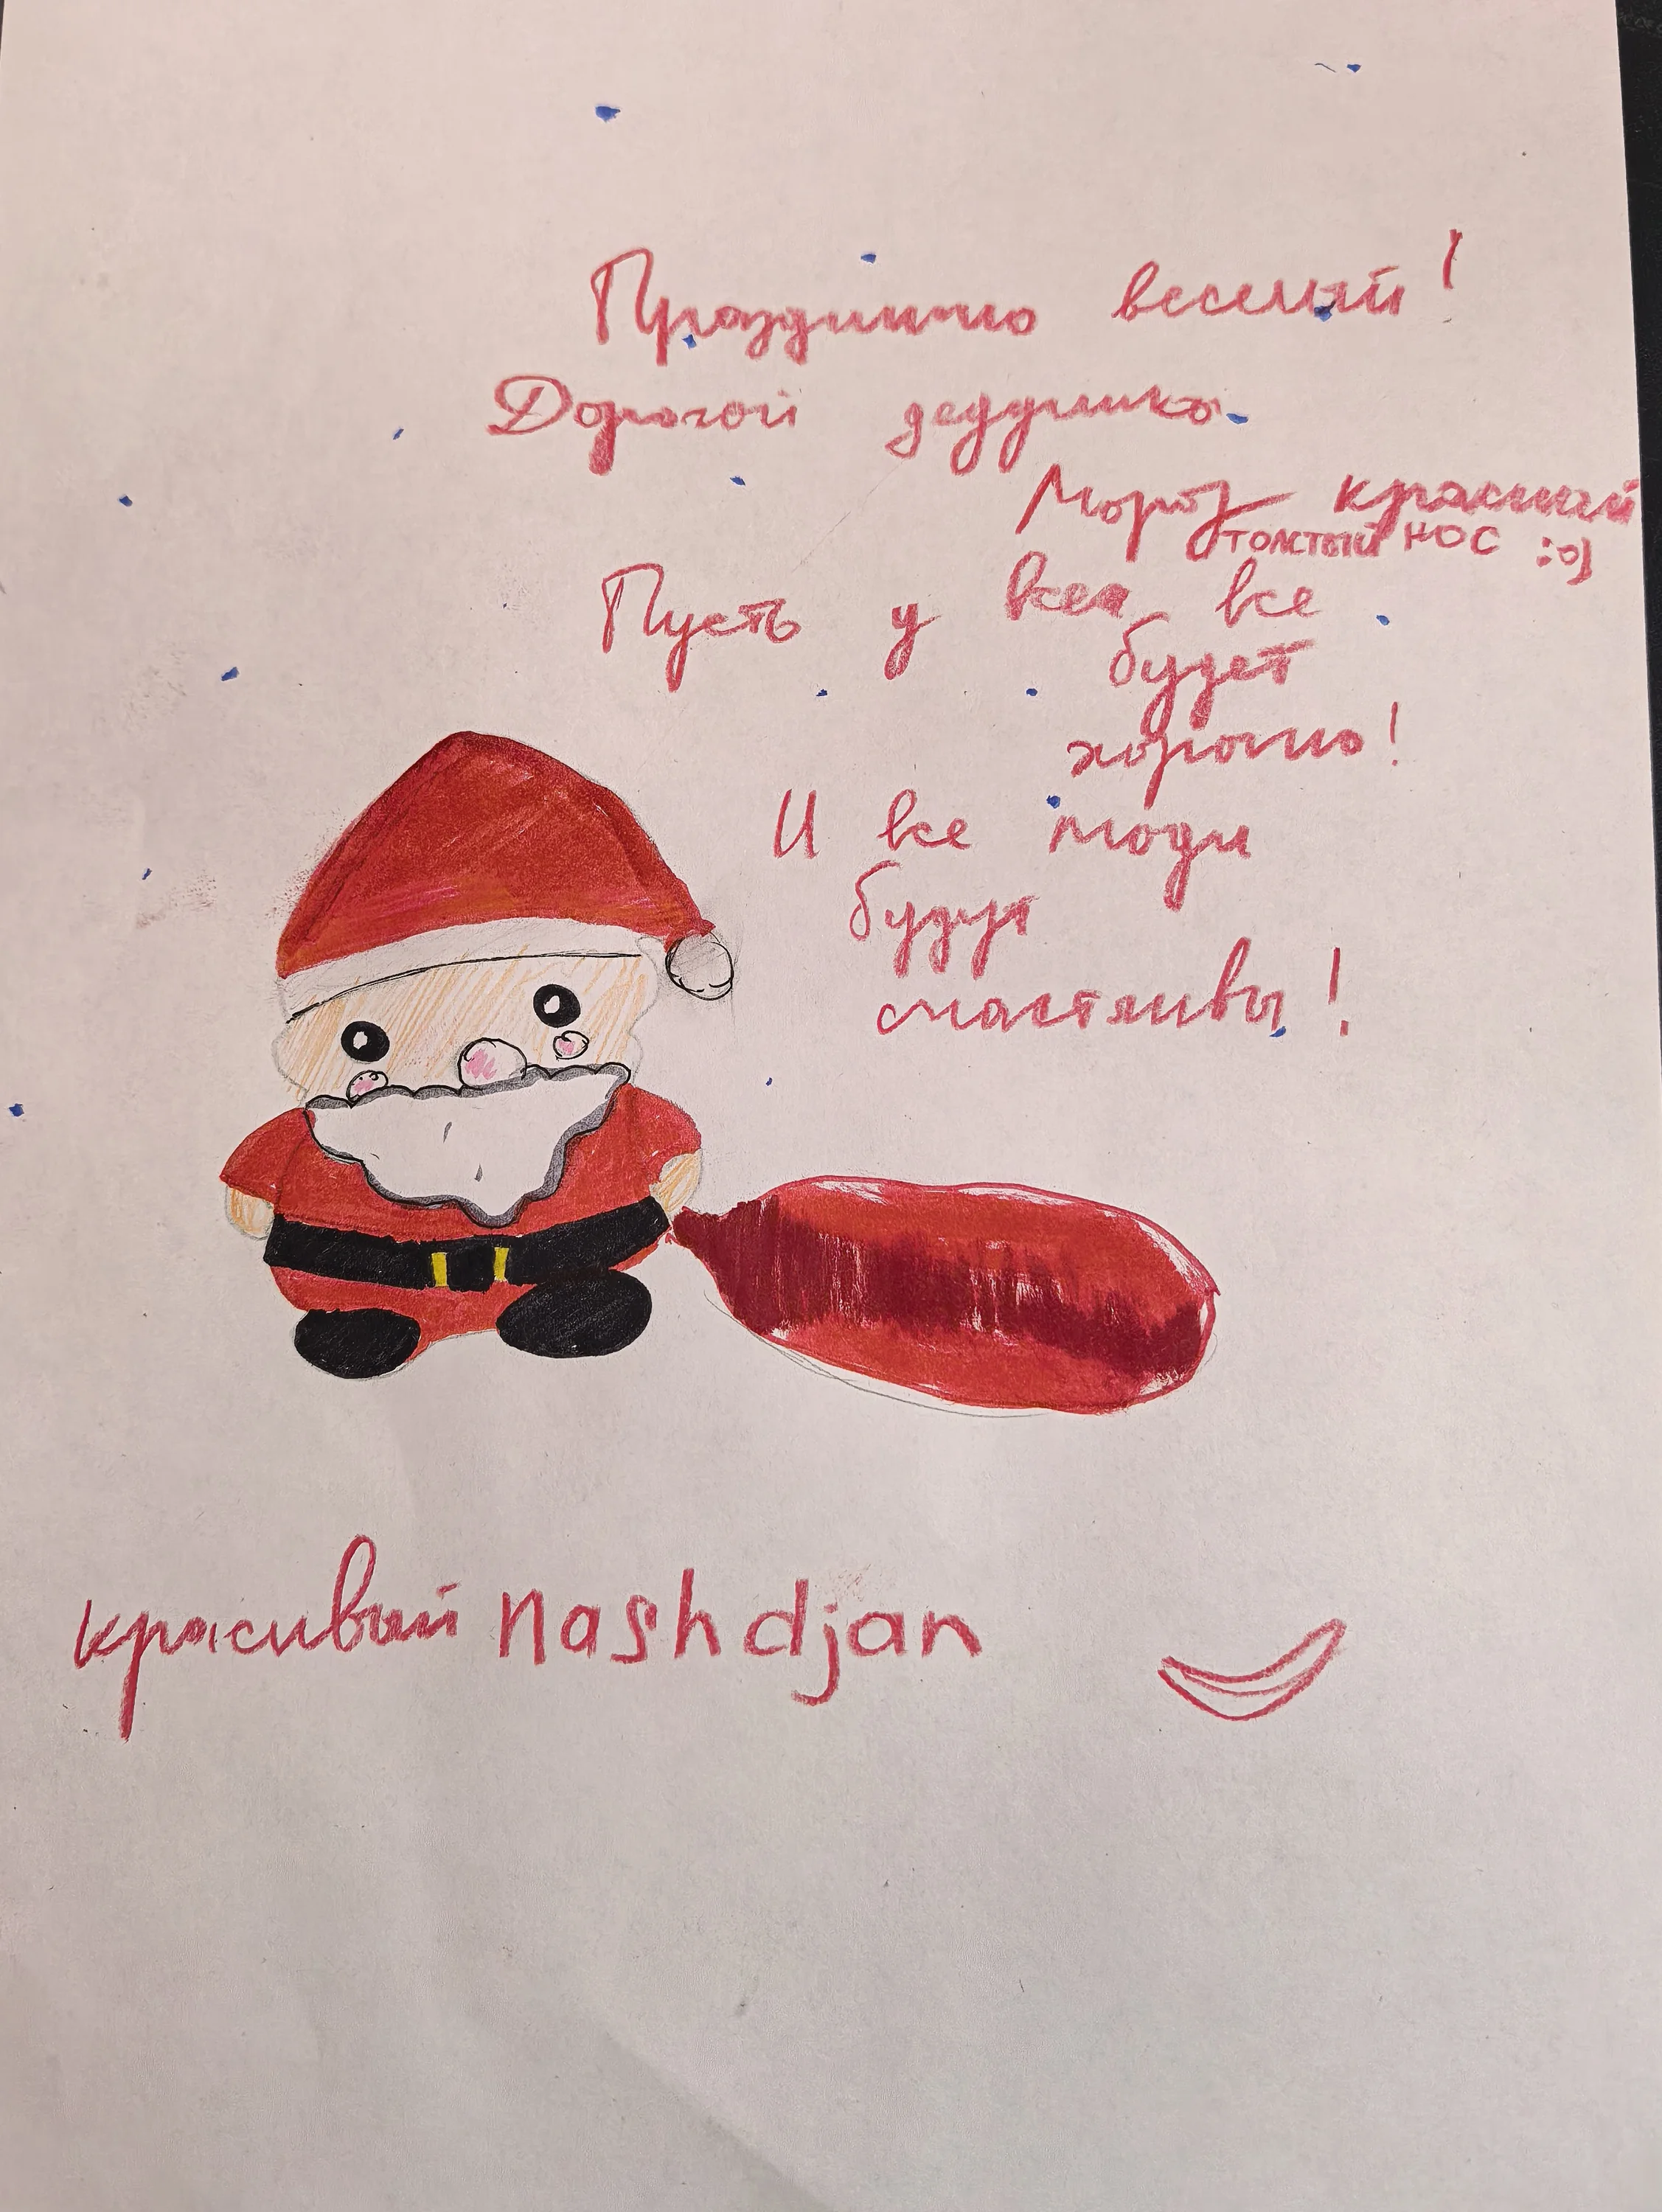 Празднично веселый!
Дорогой дедушка
Мороз красный
толстый нос :o)
Пусть у всех все
будет
хорошо!
И все люди
будут
счастливы!
красивый nash djan